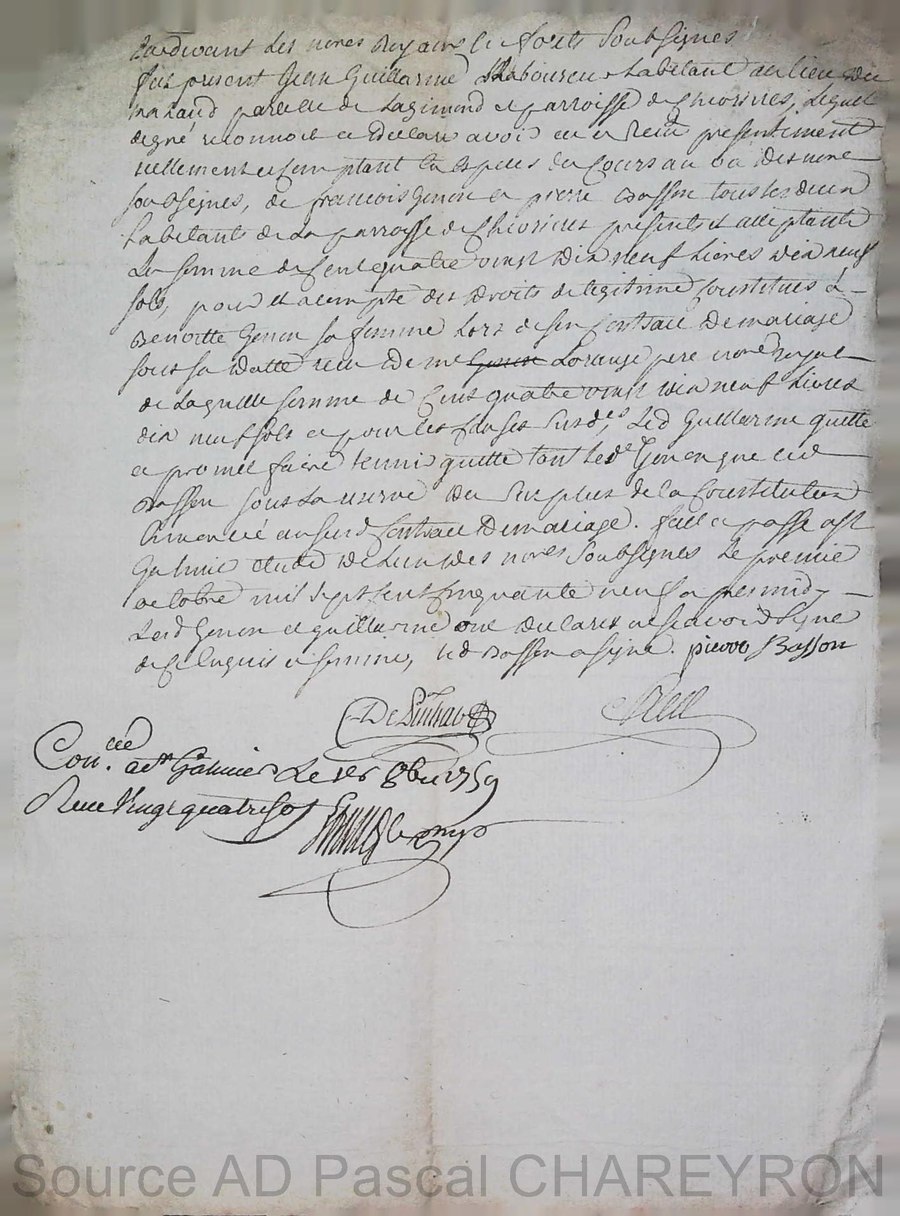 Pardevant les nores Royaux en forets soubsignes
fut present Jean Guillarme Laboureur habitant au lieu du
parcelle de Lagimond et parroisse de Chevrieres, lequel
de gré reconnoit et declare avoir eu et receu presentement
reellement et comptant en especes du cours au vû des nores
soubsignes, de francois Genon et pierre Basson tous les deux
habitants de la parroisse de Chevrieres presents et acceptants
La somme de Cent quatre vingt dix neuf Livres dix neuf
sols, pour et acompte des droits de legitime Constitués à
Benoitte Genon sa femme Lors de son Contract de mariage
sous sa datte receu de me Lorange pere nore Royal
de Laquelle somme de Cent quatre vingt dix neuf Livres
dix neuf sols et pour les causes susdes, Led Guillarme quitte
et promet faire tenir quitte tant Led Genon que led
Basson sous la reserve du surplus de la Constitution
enoncée au susd Contract de mariage. fait et passé a st
Galmier etude de L'un des nores soubsignes Le premier
octobre mil sept cent cinquante neuf apres midy
Lesd Genon et guillarme ont declarés ne scavoir signer
de ce enquis et sommés, led Basson a signé. pierre Basson
Con.llé a st Galmier Le 1er 8bre 1759
Receu vingt quatre sols
Source AD Pascal CHAREYRON